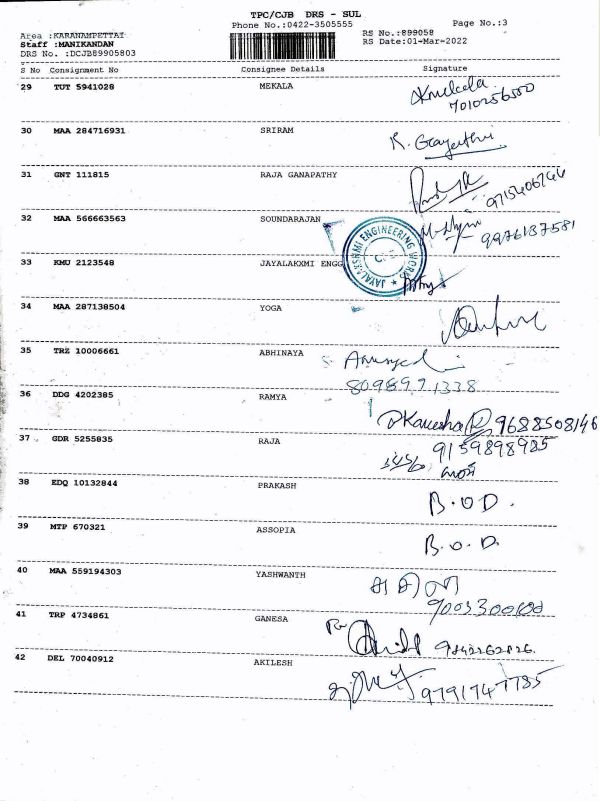 TPC/CJB DRS - SUL
Phone No.:0422-3505555
Page No.:3
Area :KARANAMPETTAI
Staff :MANIKANDAN
DRS No. :DCJB89905803
RS No.:899058
RS Date:01-Mar-2022
S No Consignment No Consignee Details Signature
29 TUT 5941028 MEKALA
7010256550
30 MAA 284716931 SRIRAM R. Gayathri
31 GNT 111815 RAJA GANAPATHY
32 MAA 566663563 SOUNDARAJAN
9976137581
33 KMU 2123548 JAYALAKXMI ENGG
JAYALAKSHMI ENGINEERING WORKS
34 MAA 287138504 YOGA
35 TRZ 10006661 ABHINAYA
8098971338
36 DDG 4202385 RAMYA
9688508146
37 GDR 5255835 RAJA 9159898985
38 EDQ 10132844 PRAKASH B.O.D.
39 MTP 670321 ASSOPIA B.O.D.
40 MAA 559194303 YASHWANTH
41 TRP 4734861 GANESA
42 DEL 70040912 AKILESH
9791747785